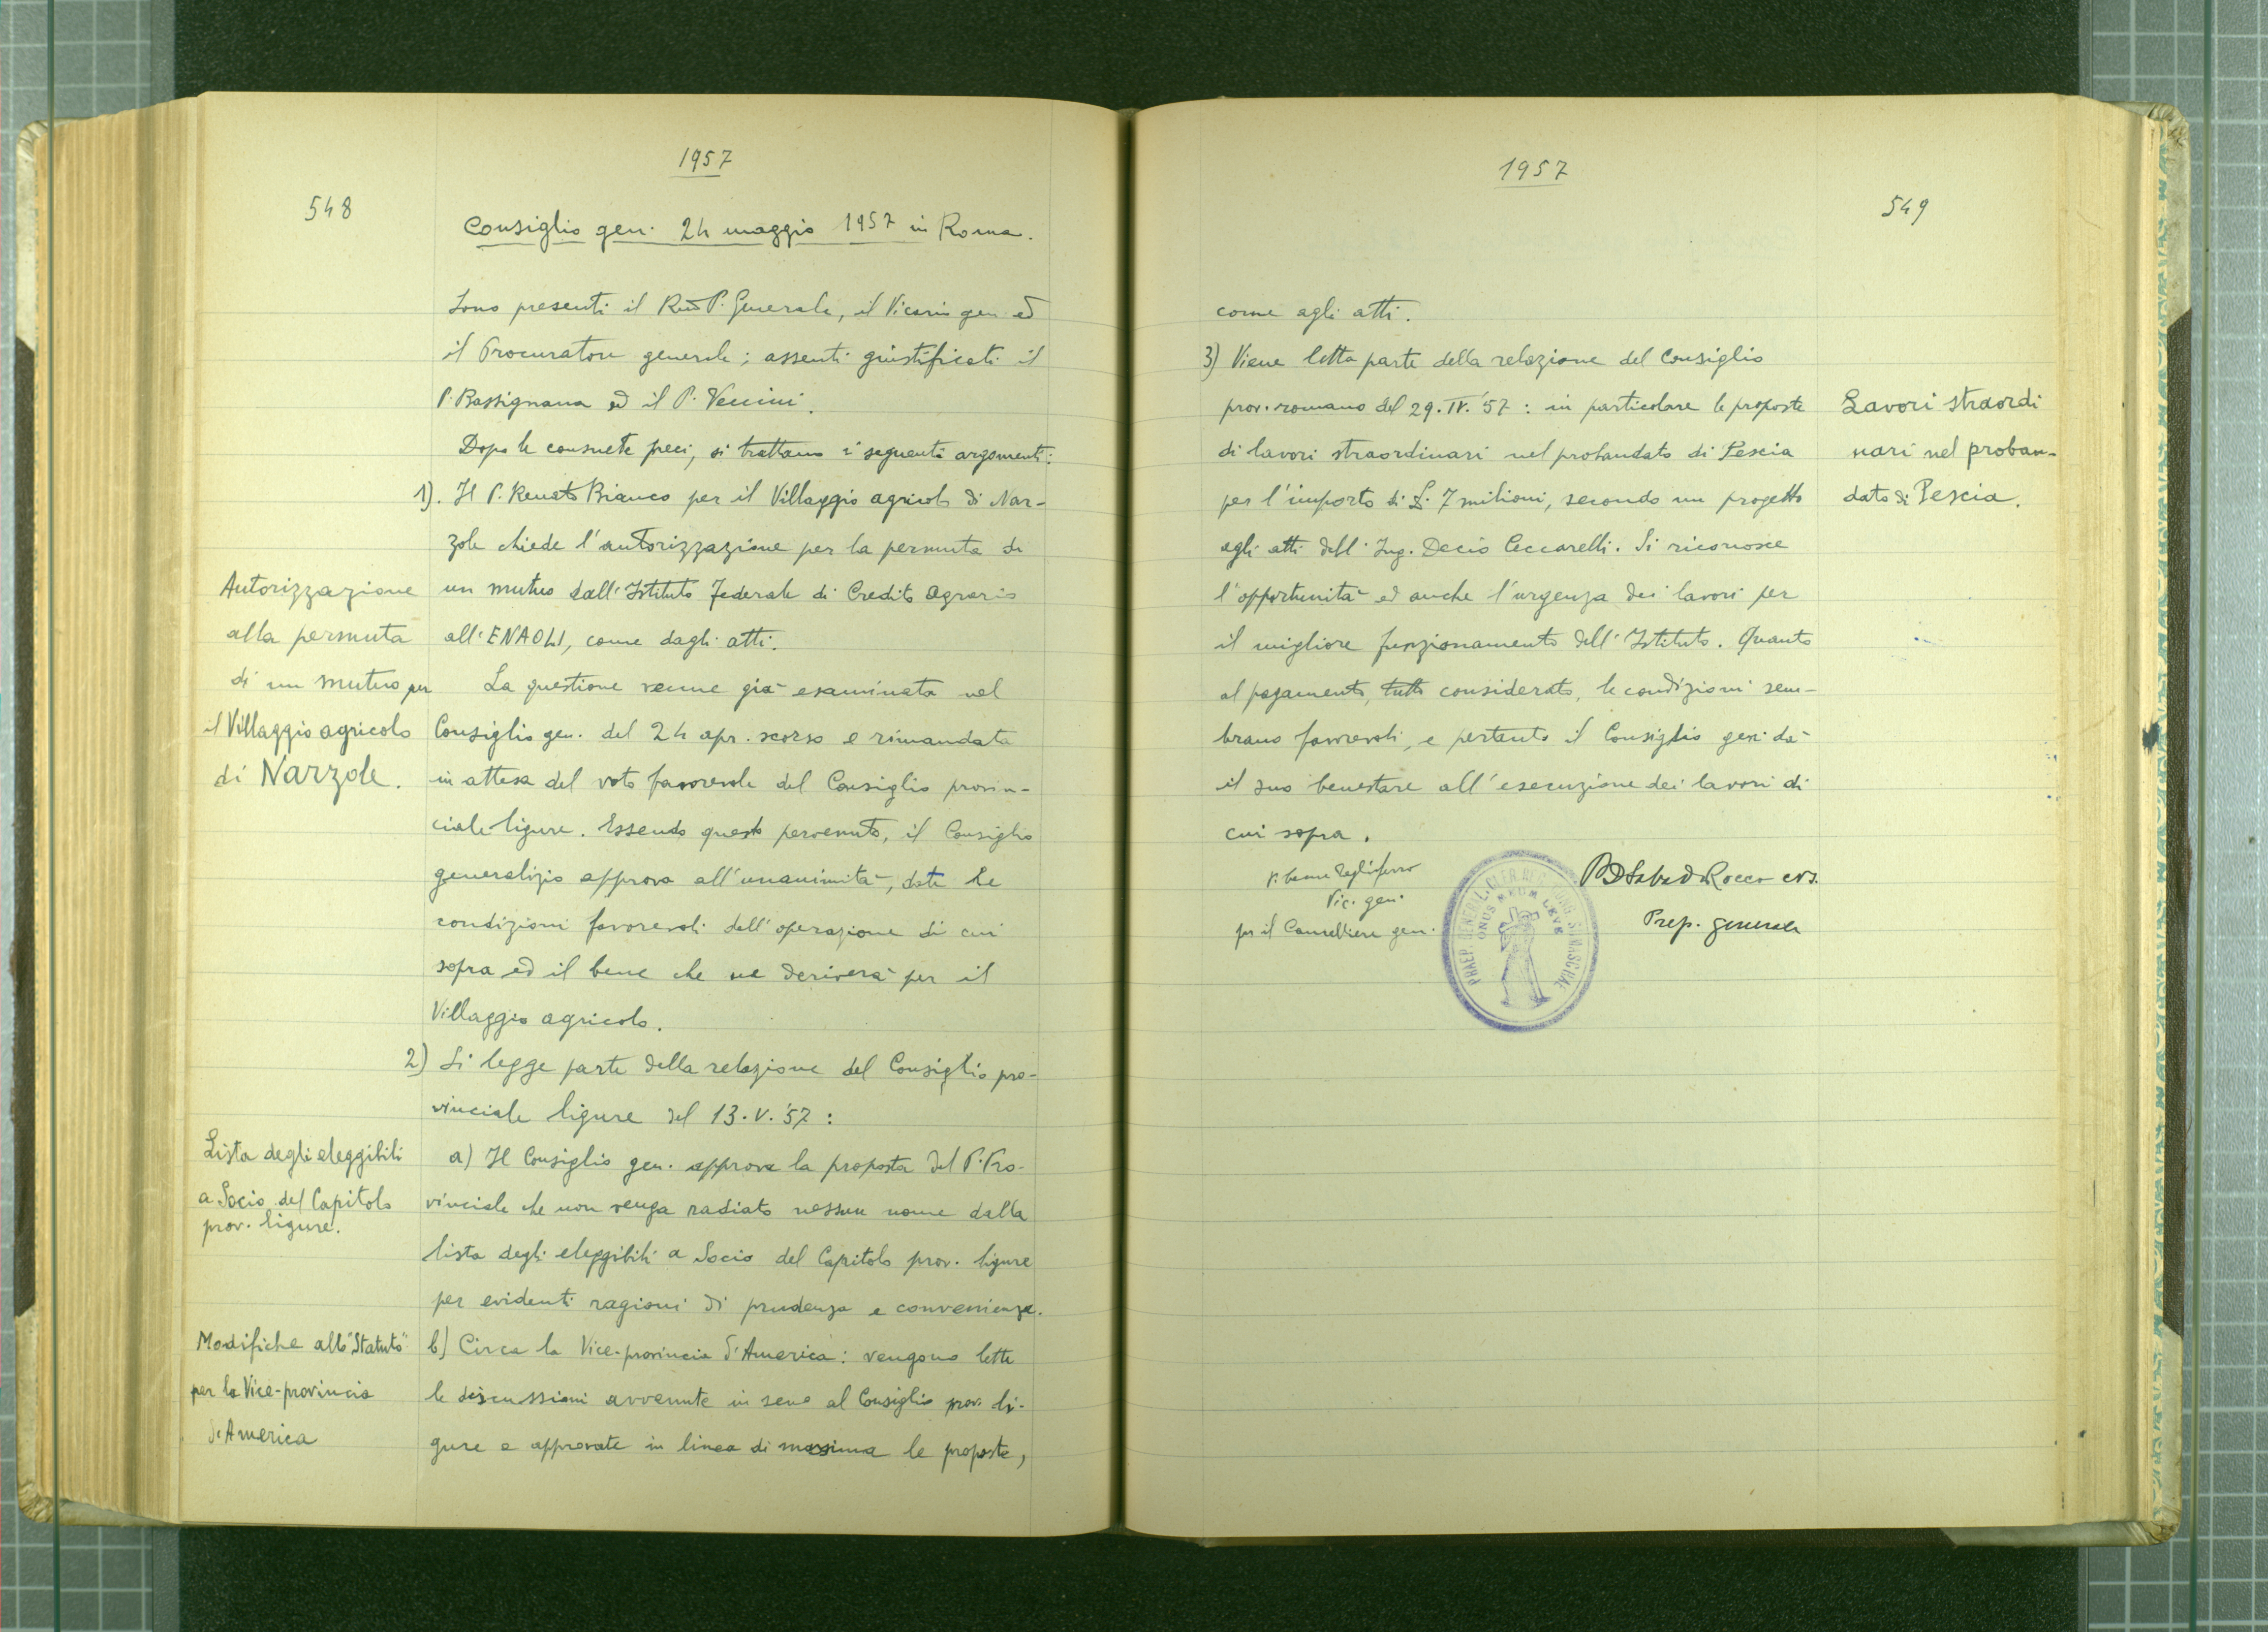 1957
548
Consiglio gen. 24 maggio 1957 in Roma.
Sono presenti il Rev̅ P. Generale, il Vicario gen. ed
il Procuratore generale; assenti giustificati il
P. Bassignana ed il P. Venini.
Dopo le consuete preci, si trattano i seguenti argomenti:
1). Il P. Renato Bianco per il Villaggio agricolo di Nar-
zole chiede l'autorizzazione per la permuta di
un mutuo dall'Istituto Federale di Credito Agrario
all'ENAOLI, come dagli atti.
La questione venne già esaminata nel
Consiglio gen. del 24 apr. scorso e rimandata
in attesa del voto favorevole del Consiglio provin-
ciale ligure. Essendo questo pervenuto, il Consiglio
generalizio approva all'unanimità, date le
condizioni favorevoli dell'operazione di cui
sopra ed il bene che ne deriverà per il
Villaggio agricolo.
2) Si legge parte della relazione del Consiglio pro-
vinciale ligure del 13.V.'57:
a) Il Consiglio gen. approva la proposta del P. Pro-
vinciale che non venga radiato nessun nome dalla
lista degli eleggibili a Socio del Capitolo prov. ligure
per evidenti ragioni di prudenza e convenienza.
b) Circa la Vice-provincia d'America: vengono lette
le discussioni avvenute in seno al Consiglio prov. li-
gure e approvate in linea di massima le proposte,
Autorizzazione
alla permuta
di un mutuo per
il Villaggio agricolo
di Narzole.
Lista degli eleggibili
a Socio del Capitolo
prov. ligure.
Modifiche allo "Statuto"
per la Vice-provincia
d'America
1957
549
come agli atti.
3) Viene letta parte della relazione del Consiglio
prov. romano del 29.IV.'57: in particolare le proposte
di lavori straordinari nel probandato di Pescia
per l'importo di L. 7 milioni, secondo un progetto
agli atti dell'Ing. Decio Ceccarelli. Si riconosce
l'opportunità ed anche l'urgenza dei lavori per
il migliore funzionamento dell'Istituto. Quanto
al pagamento, tutto considerato, le condizioni sem-
brano favorevoli, e pertanto il Consiglio gen. dà
il suo benestare all'esecuzione dei lavori di
cui sopra.
Lavori straordi
nari nel proban-
dato di Pescia.
Tagliaferro
Vic. gen.
per il Cancelliere gen.
PD Saba De Rocco crs.
Prep. generale
ONUS MEUM LEVE